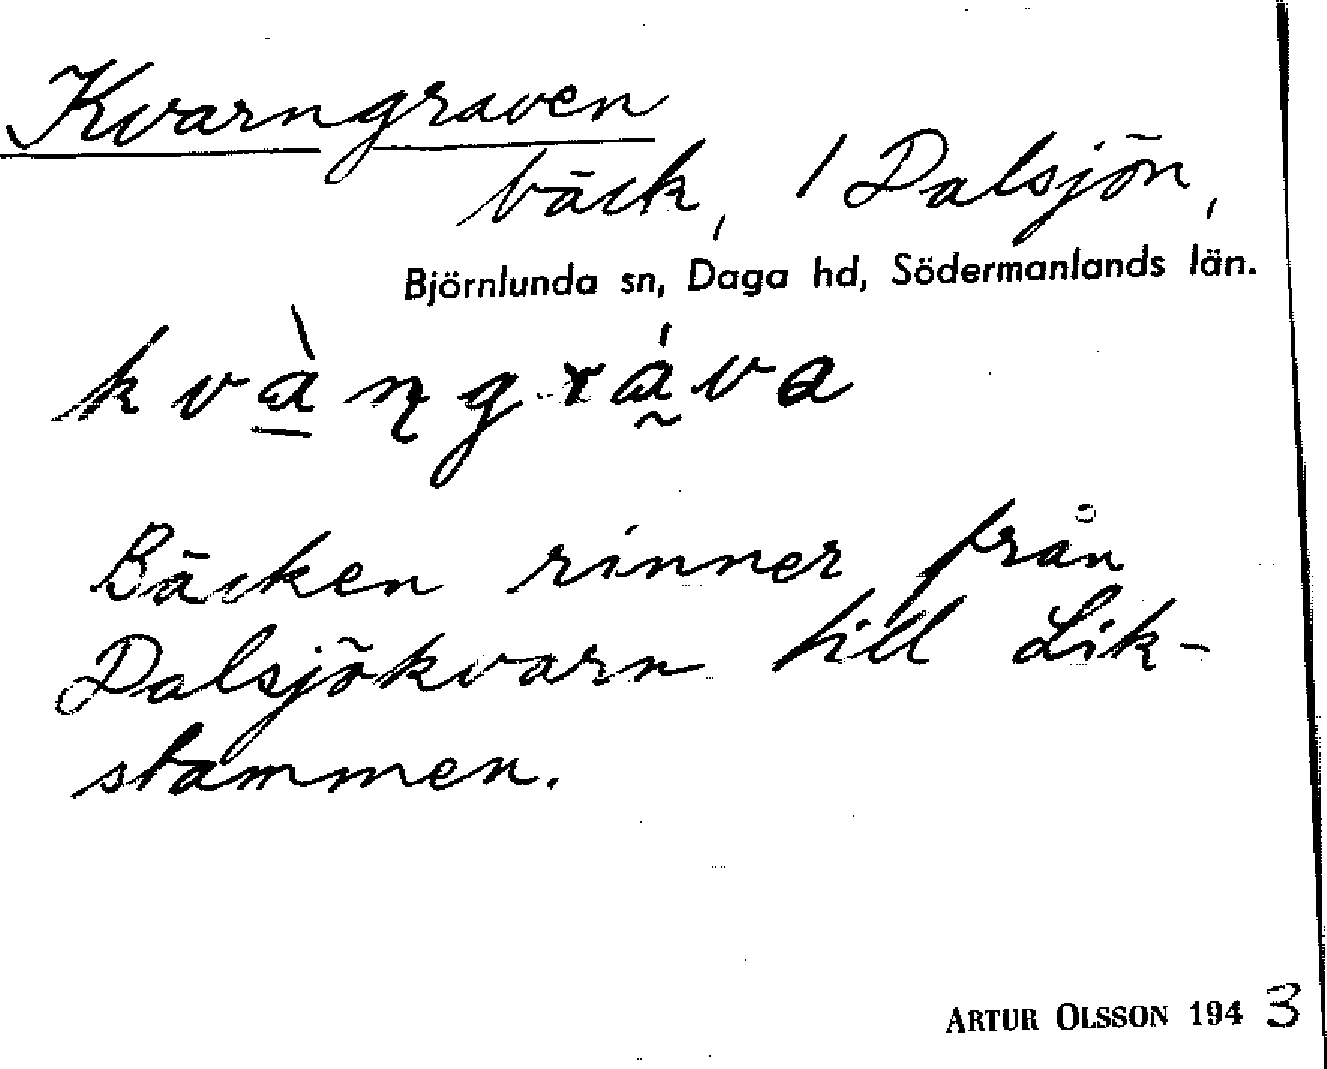 Kvarngraven
bäck, / Dalsjön,
Björnlunda sn, Daga hd, Södermanlands län.
kvà̱ɳgrá̰va
Bäcken rinner från
Dalsjökvarn till Lik-
stammen.
ARTUR OLSSON 1943